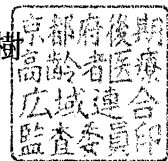 樹
京都府後期
高齢者医療
広域連合
監査委員印